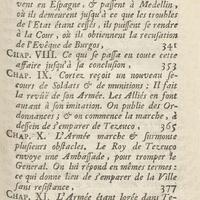 vent en Espagne, & passent à Medellin,
où ils demeurent jusqu'à ce que les troubles
de l'Etat étant cessés, ils puissent se rendre
à la Cour, où ils obtiennent la recusation
de l'Evêque de Burgos, 341
CHAP. VIII. Ce qui se passa en toute cette
affaire jusqu'à sa conclusion, 353
CHAP. IX. Cortez reçoit un nouveau se-
cours de Soldats & de munitions : Il fait
la revûë de son Armée. Les Alliés en font
autant à son imitation. On publie des Or-
donnances ; & on commence la marche, à
dessein de s'emparer de Tezeuco, 365
CHAP. X. L'Armée marche & surmonte
plusieurs obstacles. Le Roy de Tezeuco
envoye une Ambassade, pour tromper le
General. On lui répond en même termes :
ce qui donne lieu de s'emparer de la Ville
sans resistance, 377
CHAP. XI. L'Armée étant logée dans Te-